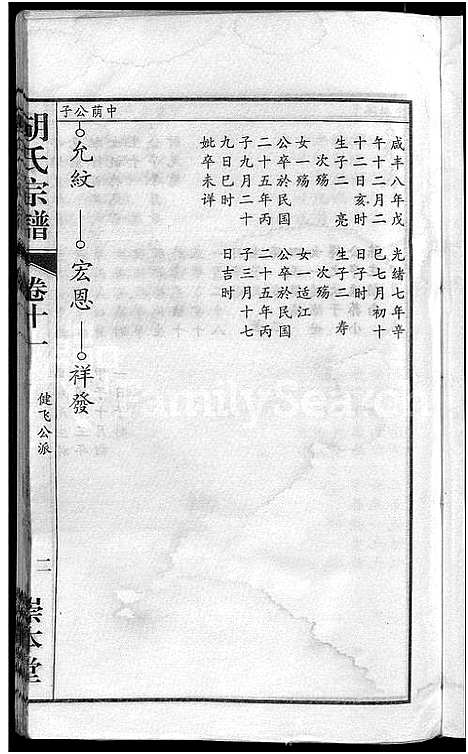 中荫公子
咸丰八年戊
午十二月二
十二日亥时
生子二 亮
次殇
女一殇
公卒於民国
二十五年丙
子九月二十
九日巳时
妣卒未详
光绪七年辛
巳七月初十
日子时
生子二 寿
次殇
女一适江
公卒於民国
二十五年丙
子三月十七
日吉时
允紋 宏恩 祥發
胡氏宗譜 卷十一
健飞公派
二
崇本堂
FamilySearch